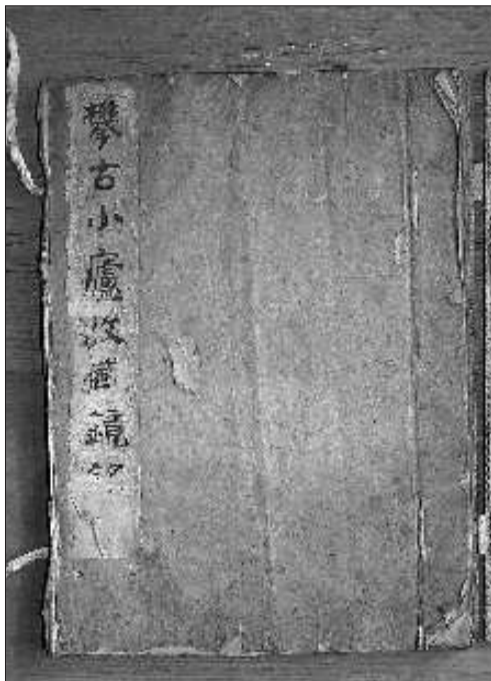 攀古小廬收藏鏡